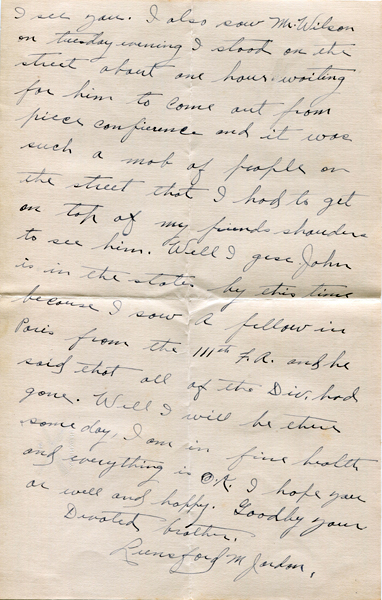 I see you. I also saw Mr. Wilson
on tuesday evening I stood on the
street about one hour waiting
for him to come out from
piece confierence and it was
such a mob of people on
the street that I had to get
on top of my friends shoulders
to see him. Well I gese John
is in the states by this time
because I saw a fellow in
Paris from the 111th F.A. and he
said that all of the Div. had
gone. Well I will be there
some day. I am in fine health
and everything is O.K. I hope you
ar well and happy. Goodby your
Devoted brother.
Lunsford M Jordon.